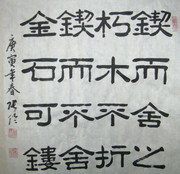 鍥而舍之
朽木不折
鍥而不舍
金石可鏤
庚寅年春